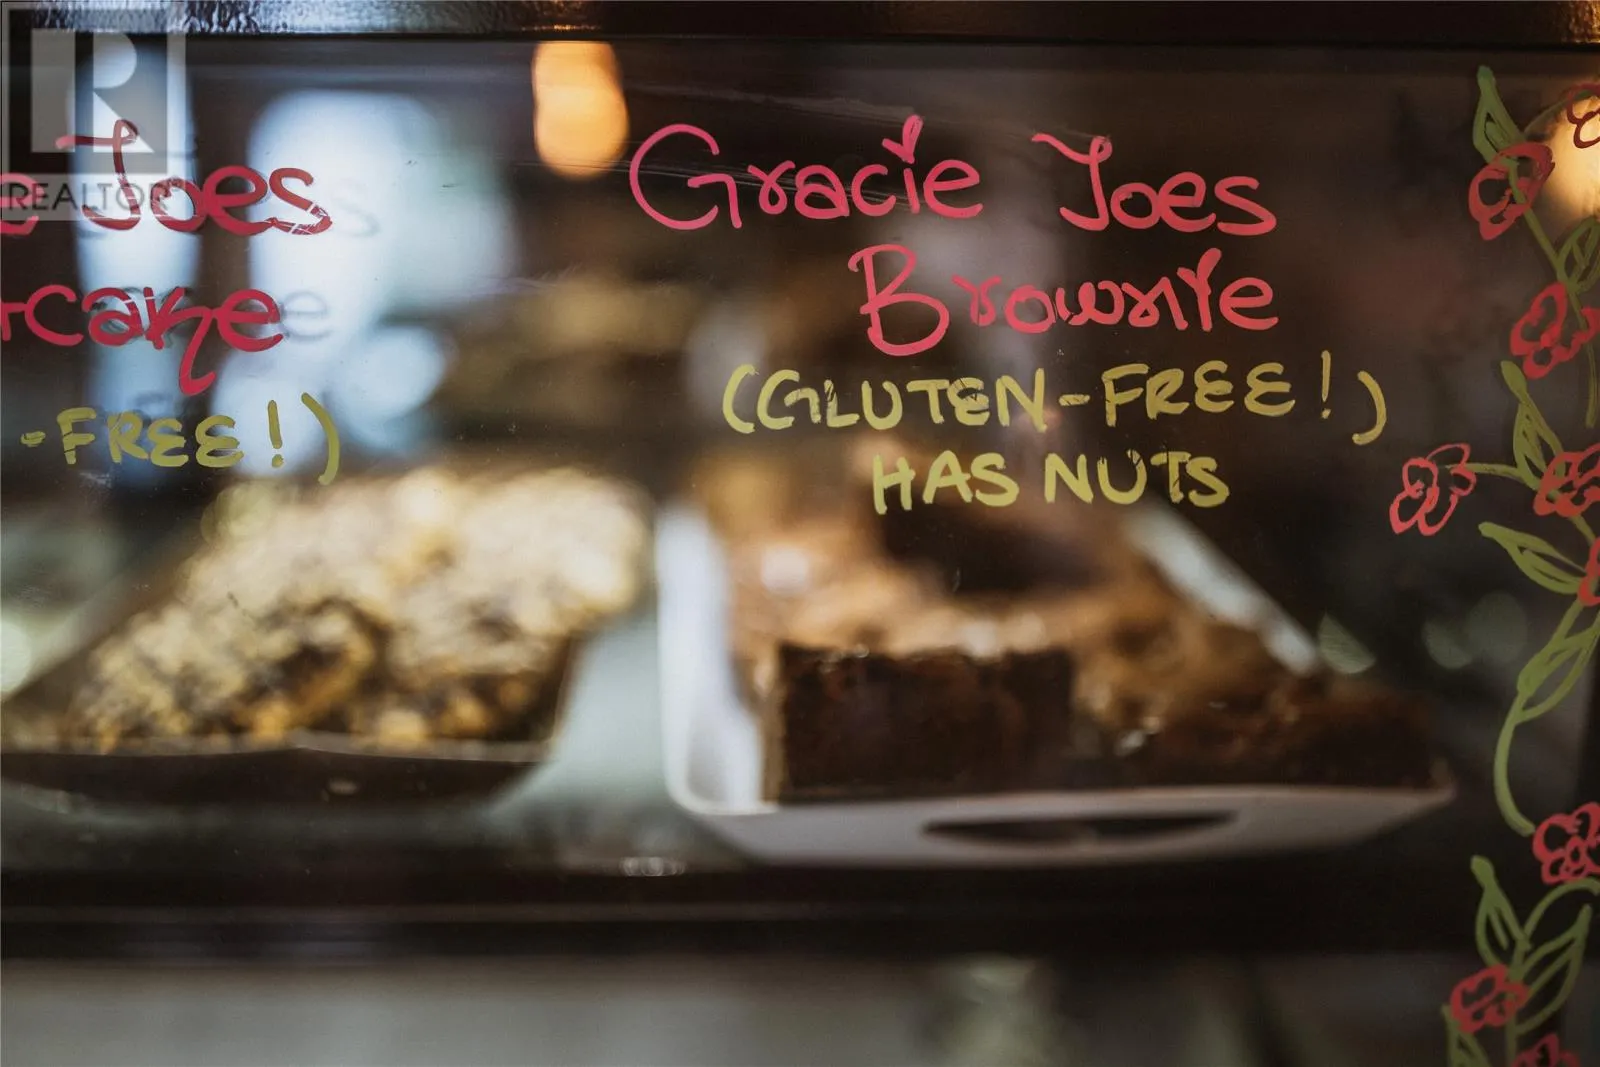 REALTOR
e Joes
cake
-FREE!)
Gracie Joes
Brownie
(GLUTEN-FREE!)
HAS NUTS